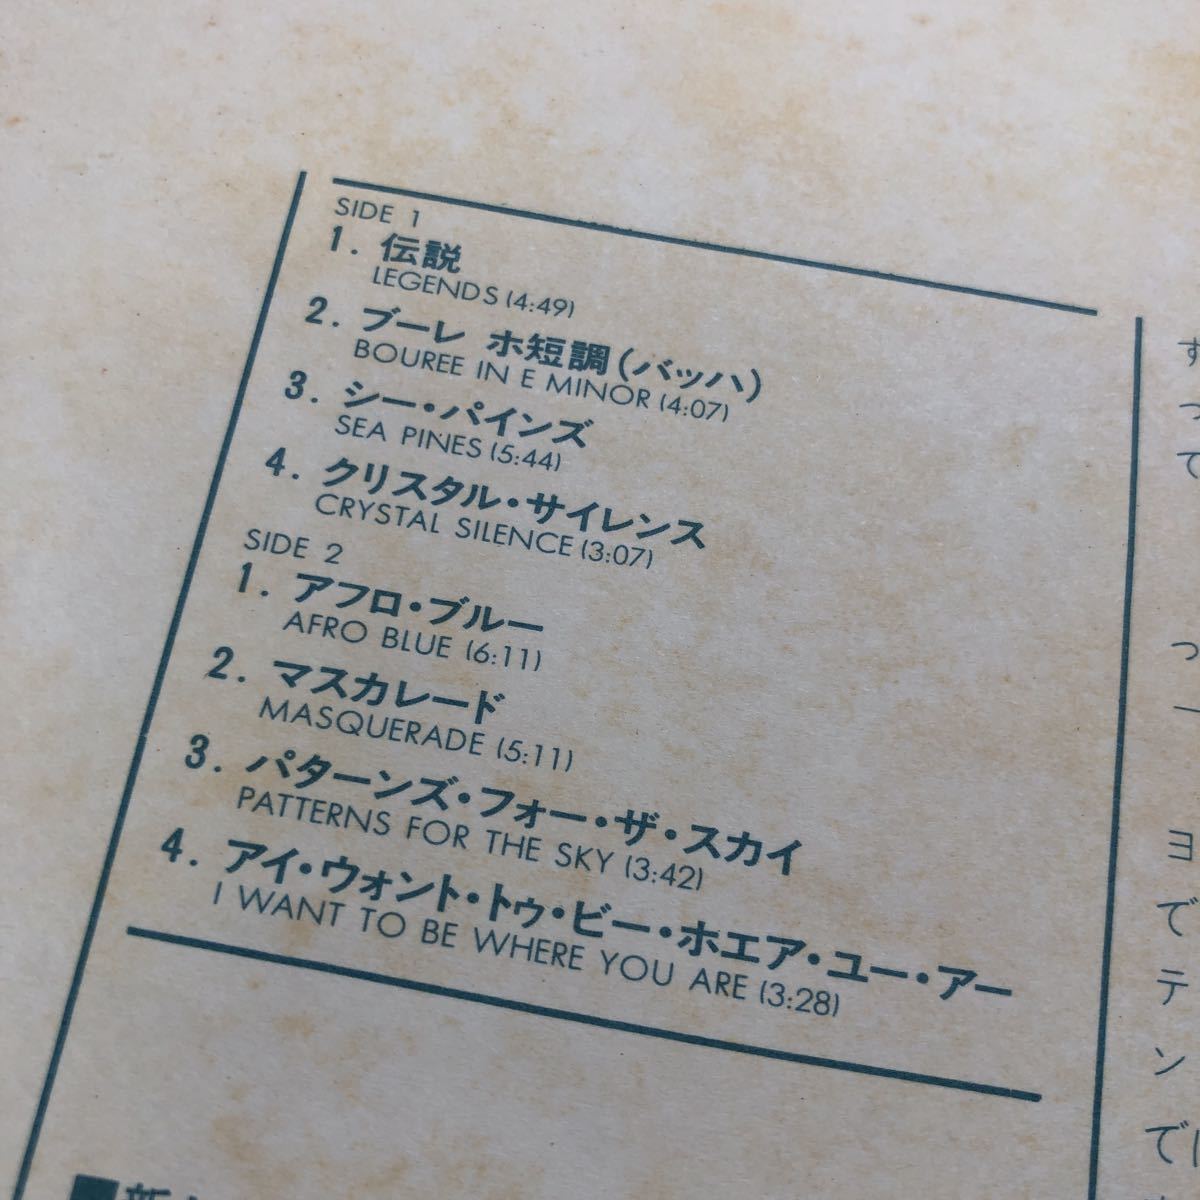 SIDE 1
1. 伝説
LEGENDS (4:49)
2. ブーレ ホ短調(バッハ)
BOUREE IN E MINOR (4:07)
3. シー・パインズ
SEA PINES (5:44)
4. クリスタル・サイレンス
CRYSTAL SILENCE (3:07)
SIDE 2
1. アフロ・ブルー
AFRO BLUE (6:11)
2. マスカレード
MASQUERADE (5:11)
3. パターンズ・フォー・ザ・スカイ
PATTERNS FOR THE SKY (3:42)
4. アイ・ウォント・トゥ・ビー・ホエア・ユー・アー
I WANT TO BE WHERE YOU ARE (3:28)